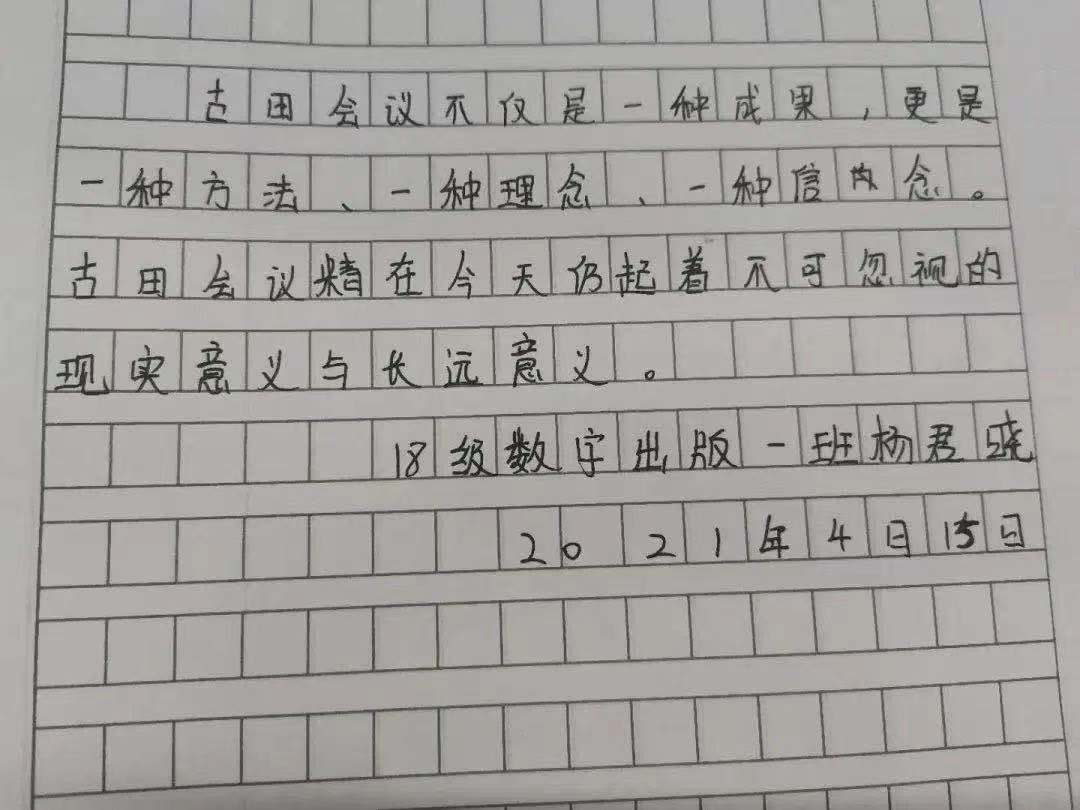 古田会议不仅是一种成果,更是
一种方法、一种理念、一种信念。
古田会议精在今天仍起着不可忽视的
现实意义与长远意义。
18级数字出版一班杨君晓
2021年4日15日